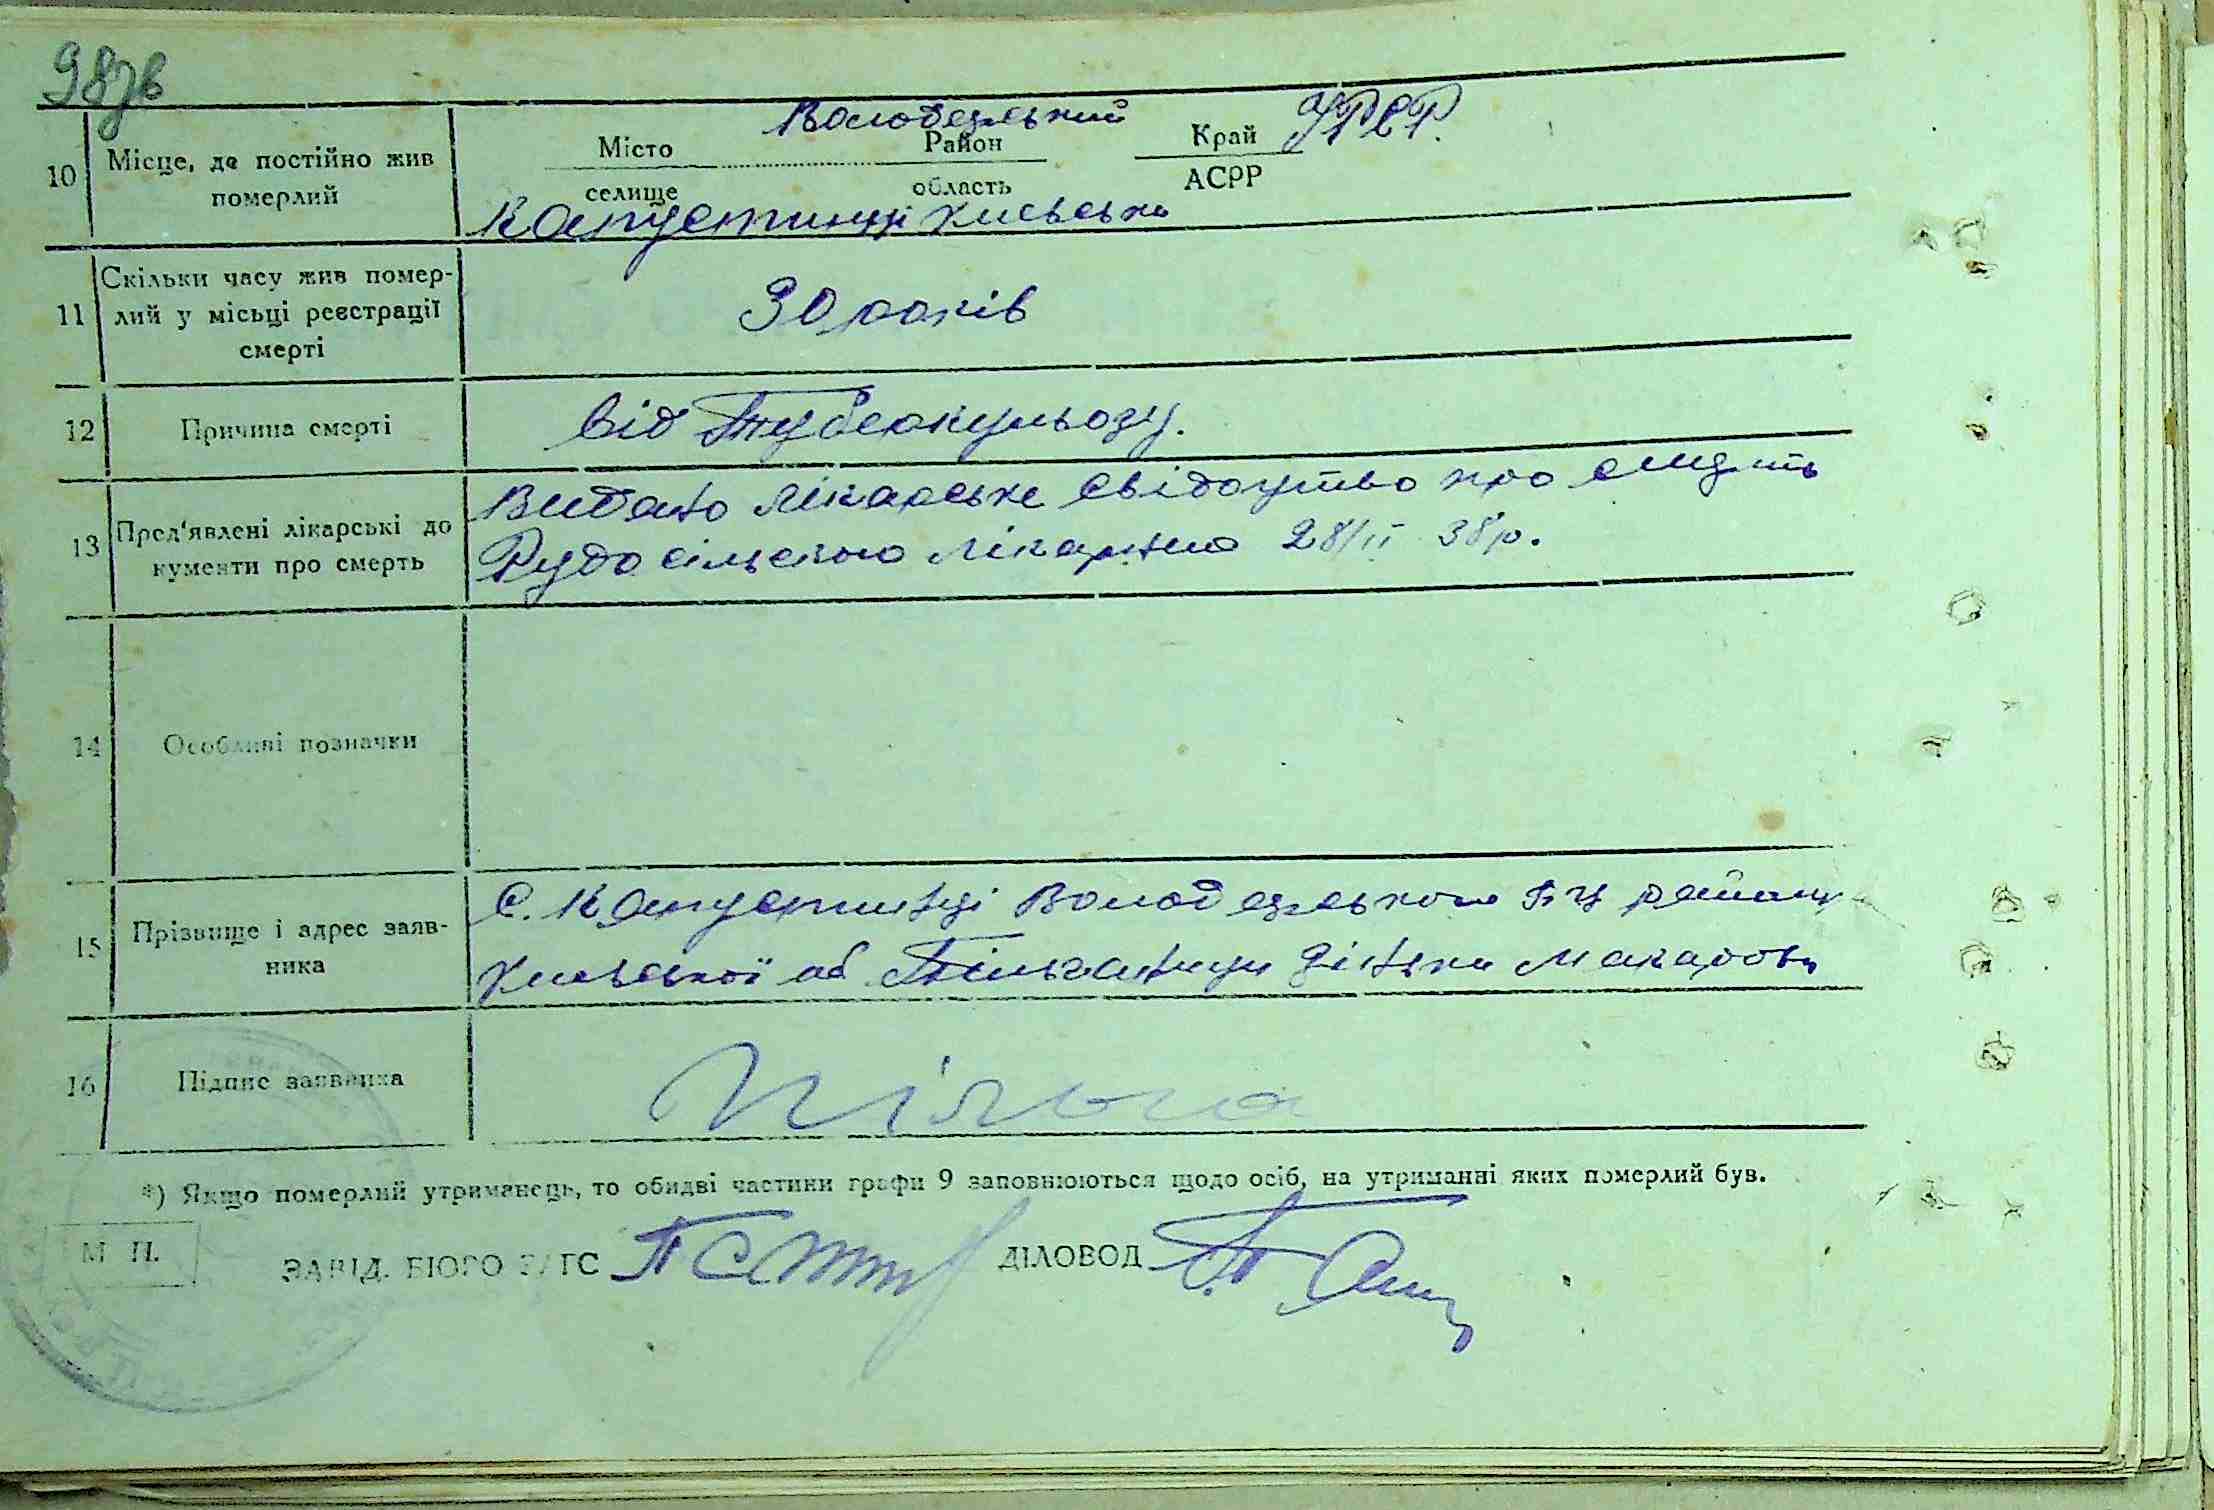 98зв
Володарський УРСР.
10 Місце, де постійно жив померлий
Місто Район Край
селище область АСРР
Капустинці Київська
11 Скільки часу жив помер-
лий у місьці реєстрації
смерті
30 років
12 Причина смерті
від Туберкульозу.
13 Пред'явлені лікарські до
кументи про смерть
Видано лікарське свідоцтво про смерть
Рудосільською лікарнею 28/II 38 р.
14 Особливі позначки
15 Прізвище і адрес заяв-
ника
С. Капустинці Володарського БЦ району
Київської об Макаров
16 Підпис заявника
*) Якщо померлий утриманець, то обидві частини графи 9 заповнюються щодо осіб, на утриманні яких померлий був.
М П.
ЗАВІД. БЮРО ЗАГС ДІЛОВОД